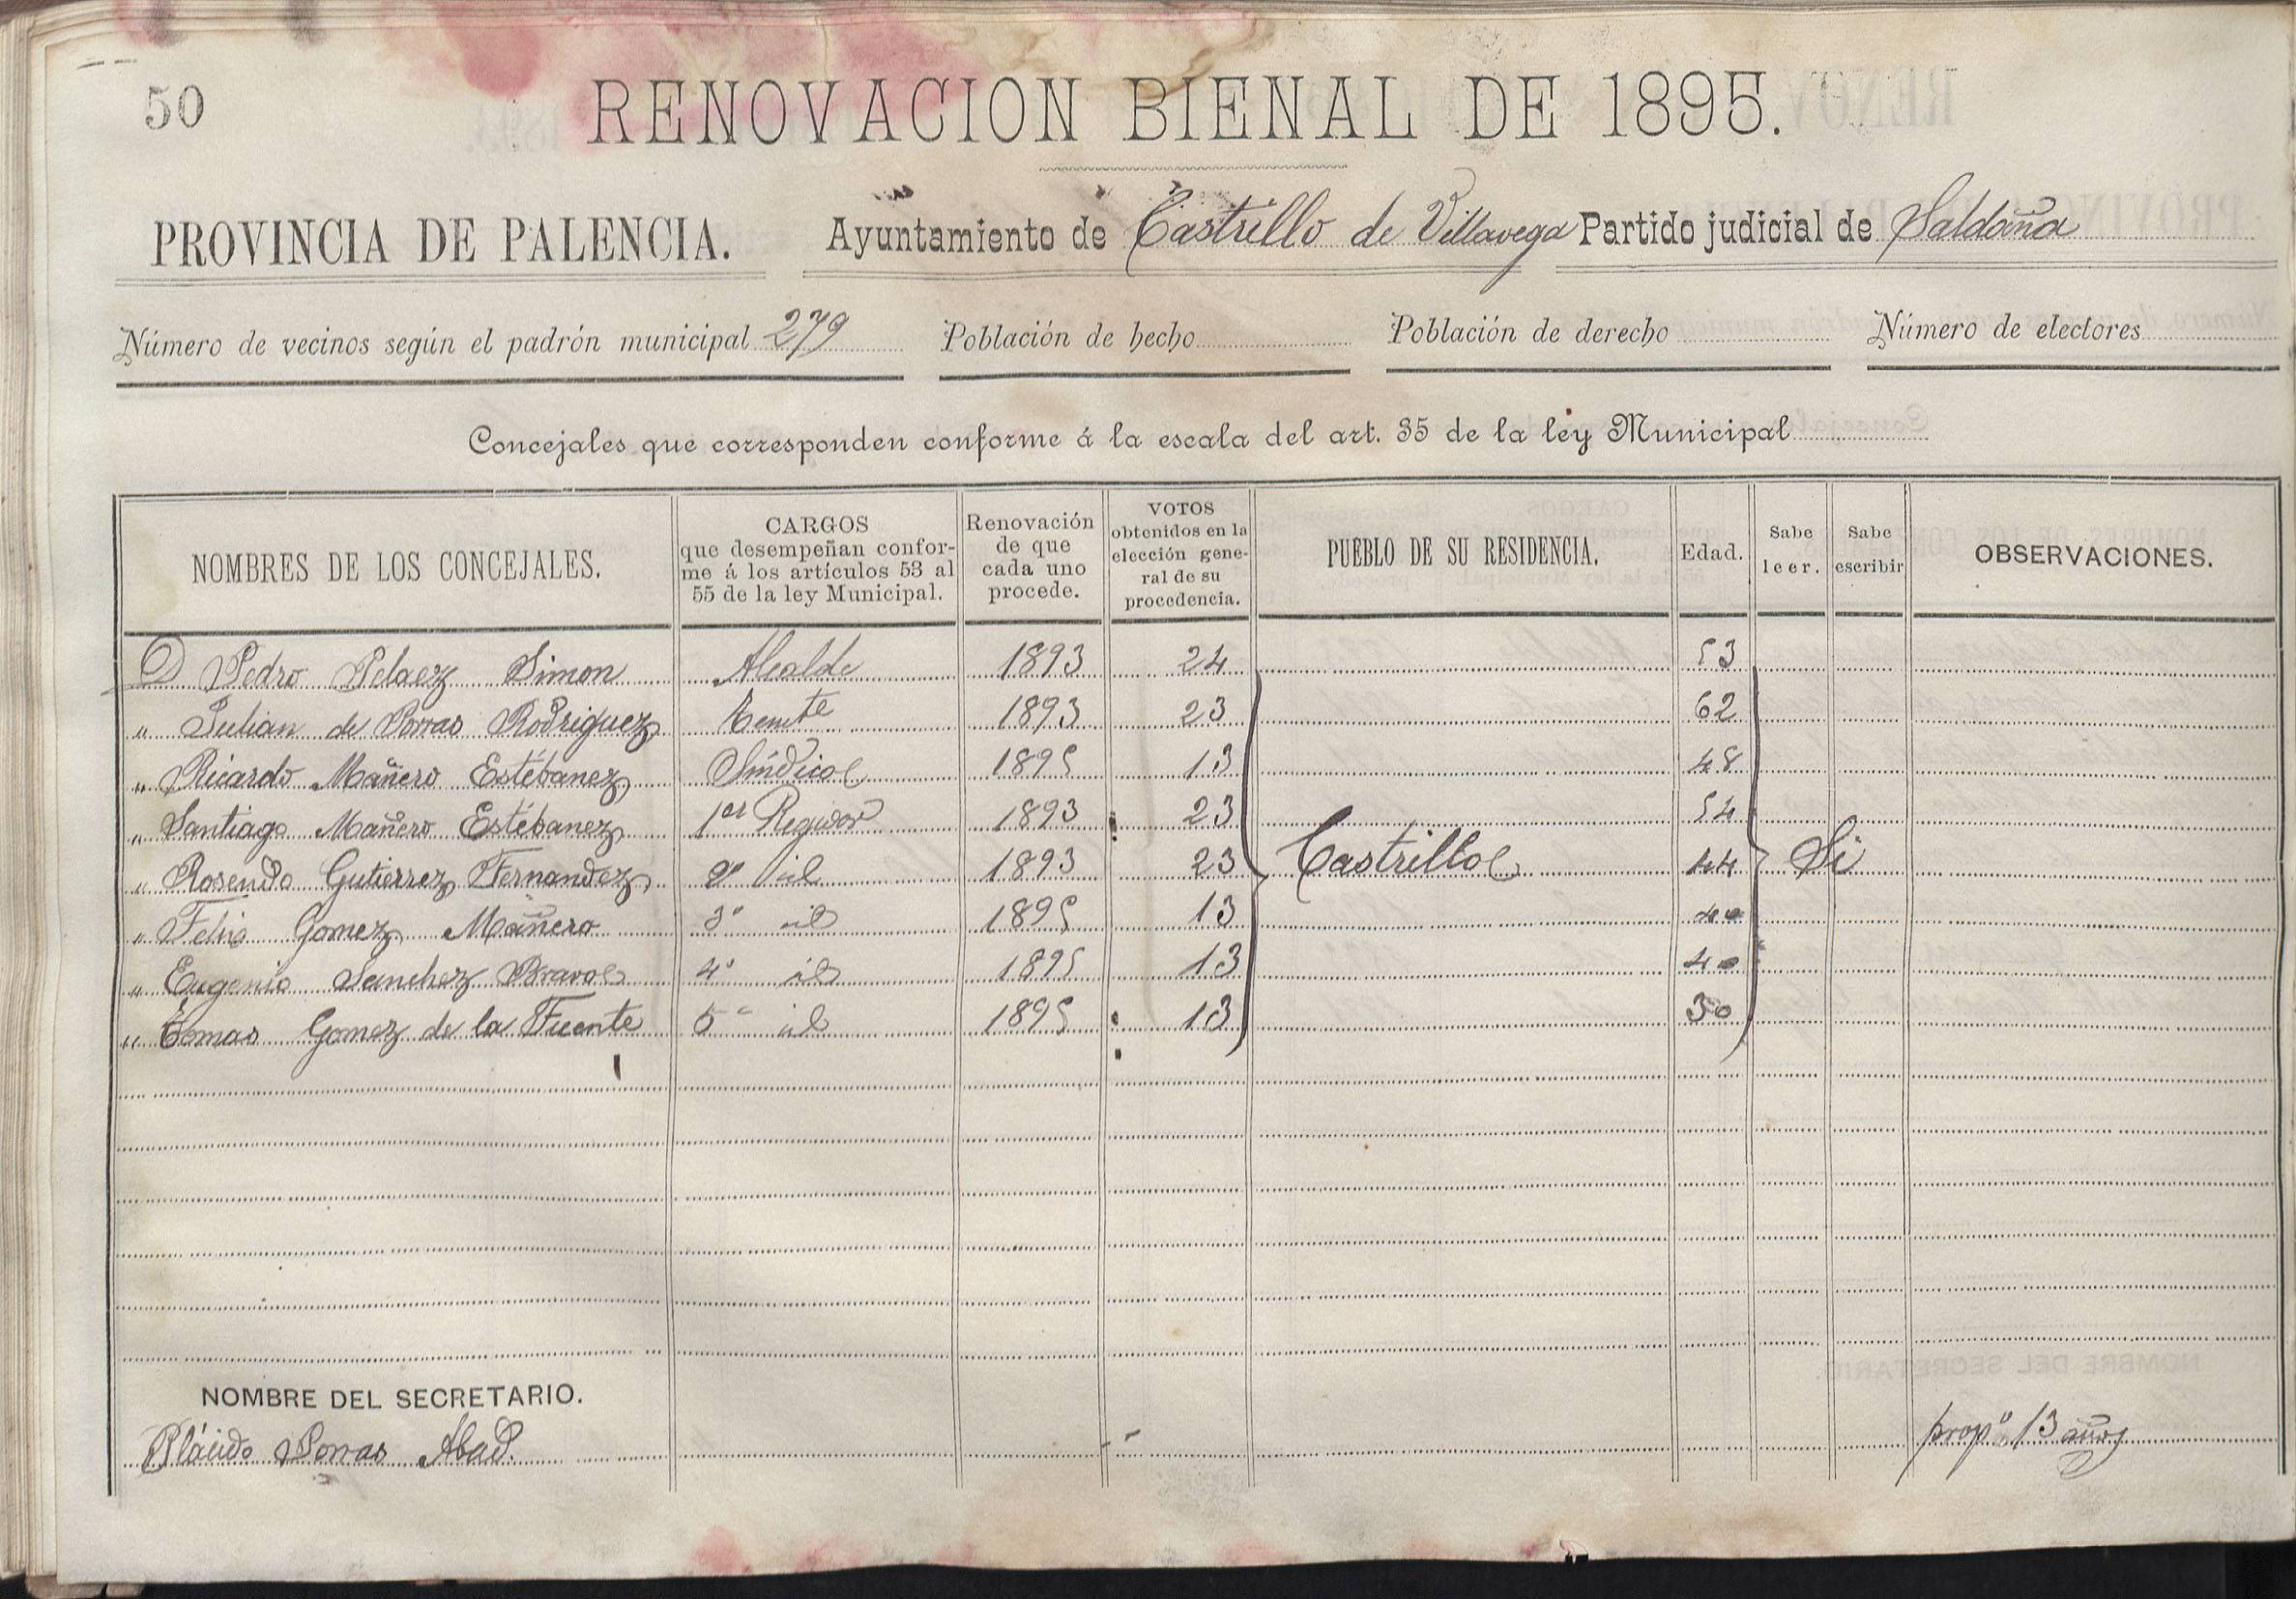 50
RENOVACION BIENAL DE 1895.
PROVINCIA DE PALENCIA. Ayuntamiento de Castrillo de Villavega Partido judicial de Saldaña
Número de vecinos según el padrón municipal 279 Población de hecho Población de derecho Número de electores
Concejales que corresponden conforme á la escala del art. 35 de la ley Municipal
NOMBRES DE LOS CONCEJALES. CARGOS que desempeñan conforme á los artículos 53 al 55 de la ley Municipal. Renovación de que cada uno procede. VOTOS obtenidos en la elección general de su procedencia. PUEBLO DE SU RESIDENCIA. Edad. Sabe leer. Sabe escribir OBSERVACIONES.
D Pedro Pelaez Simon Alcalde 1893 24 53
" Julian de Porras Rodriguez Tente 1893 23 62
" Ricardo Mañero Estébanez Síndico 1895 13 48
" Santiago Mañero Estébanez 1er Regidor 1893 23 54
" Rosendo Gutierrez Fernandez 2º id 1893 23 Castrillo 44 Si
" Felix Gomez Mañero 3º id 1895 13 40
" Eugenio Sanchez Bravo 4º id 1895 13 40
" Tomas Gomez de la Fuente 5º id 1895 13 30
NOMBRE DEL SECRETARIO.
Plácido Porras Abad. propº 13 años